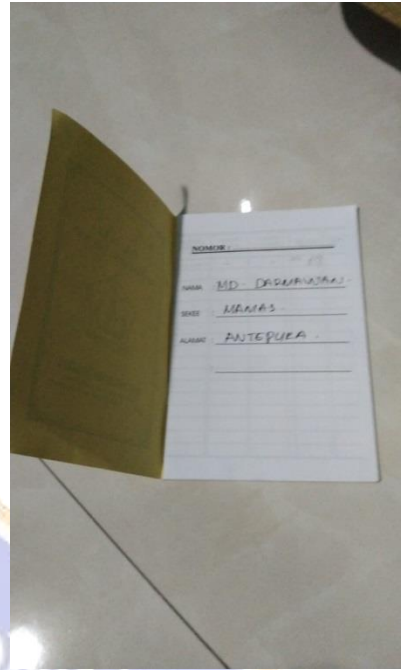 NOMOR :
NAMA : MD. DARMAWAN.
SEKEE : MAMAS.
ALAMAT : ANTEPURA.